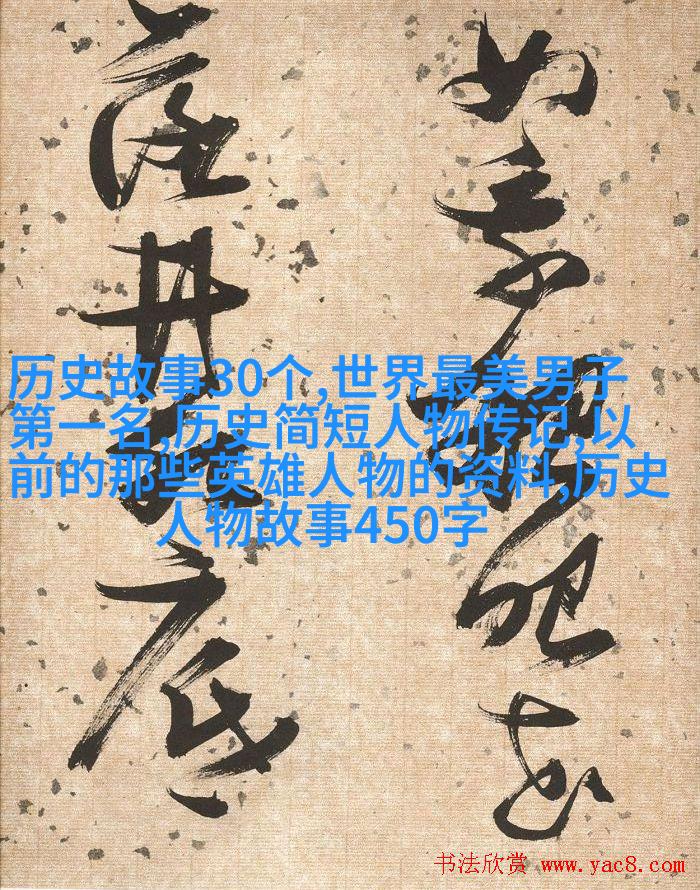 如
肥
井
底
历史故事30个,世界最美男子
第一名,历史简短人物传记,以
前的那些英雄人物的资料,历史
人物故事450字
书法欣赏 www.yac8.com